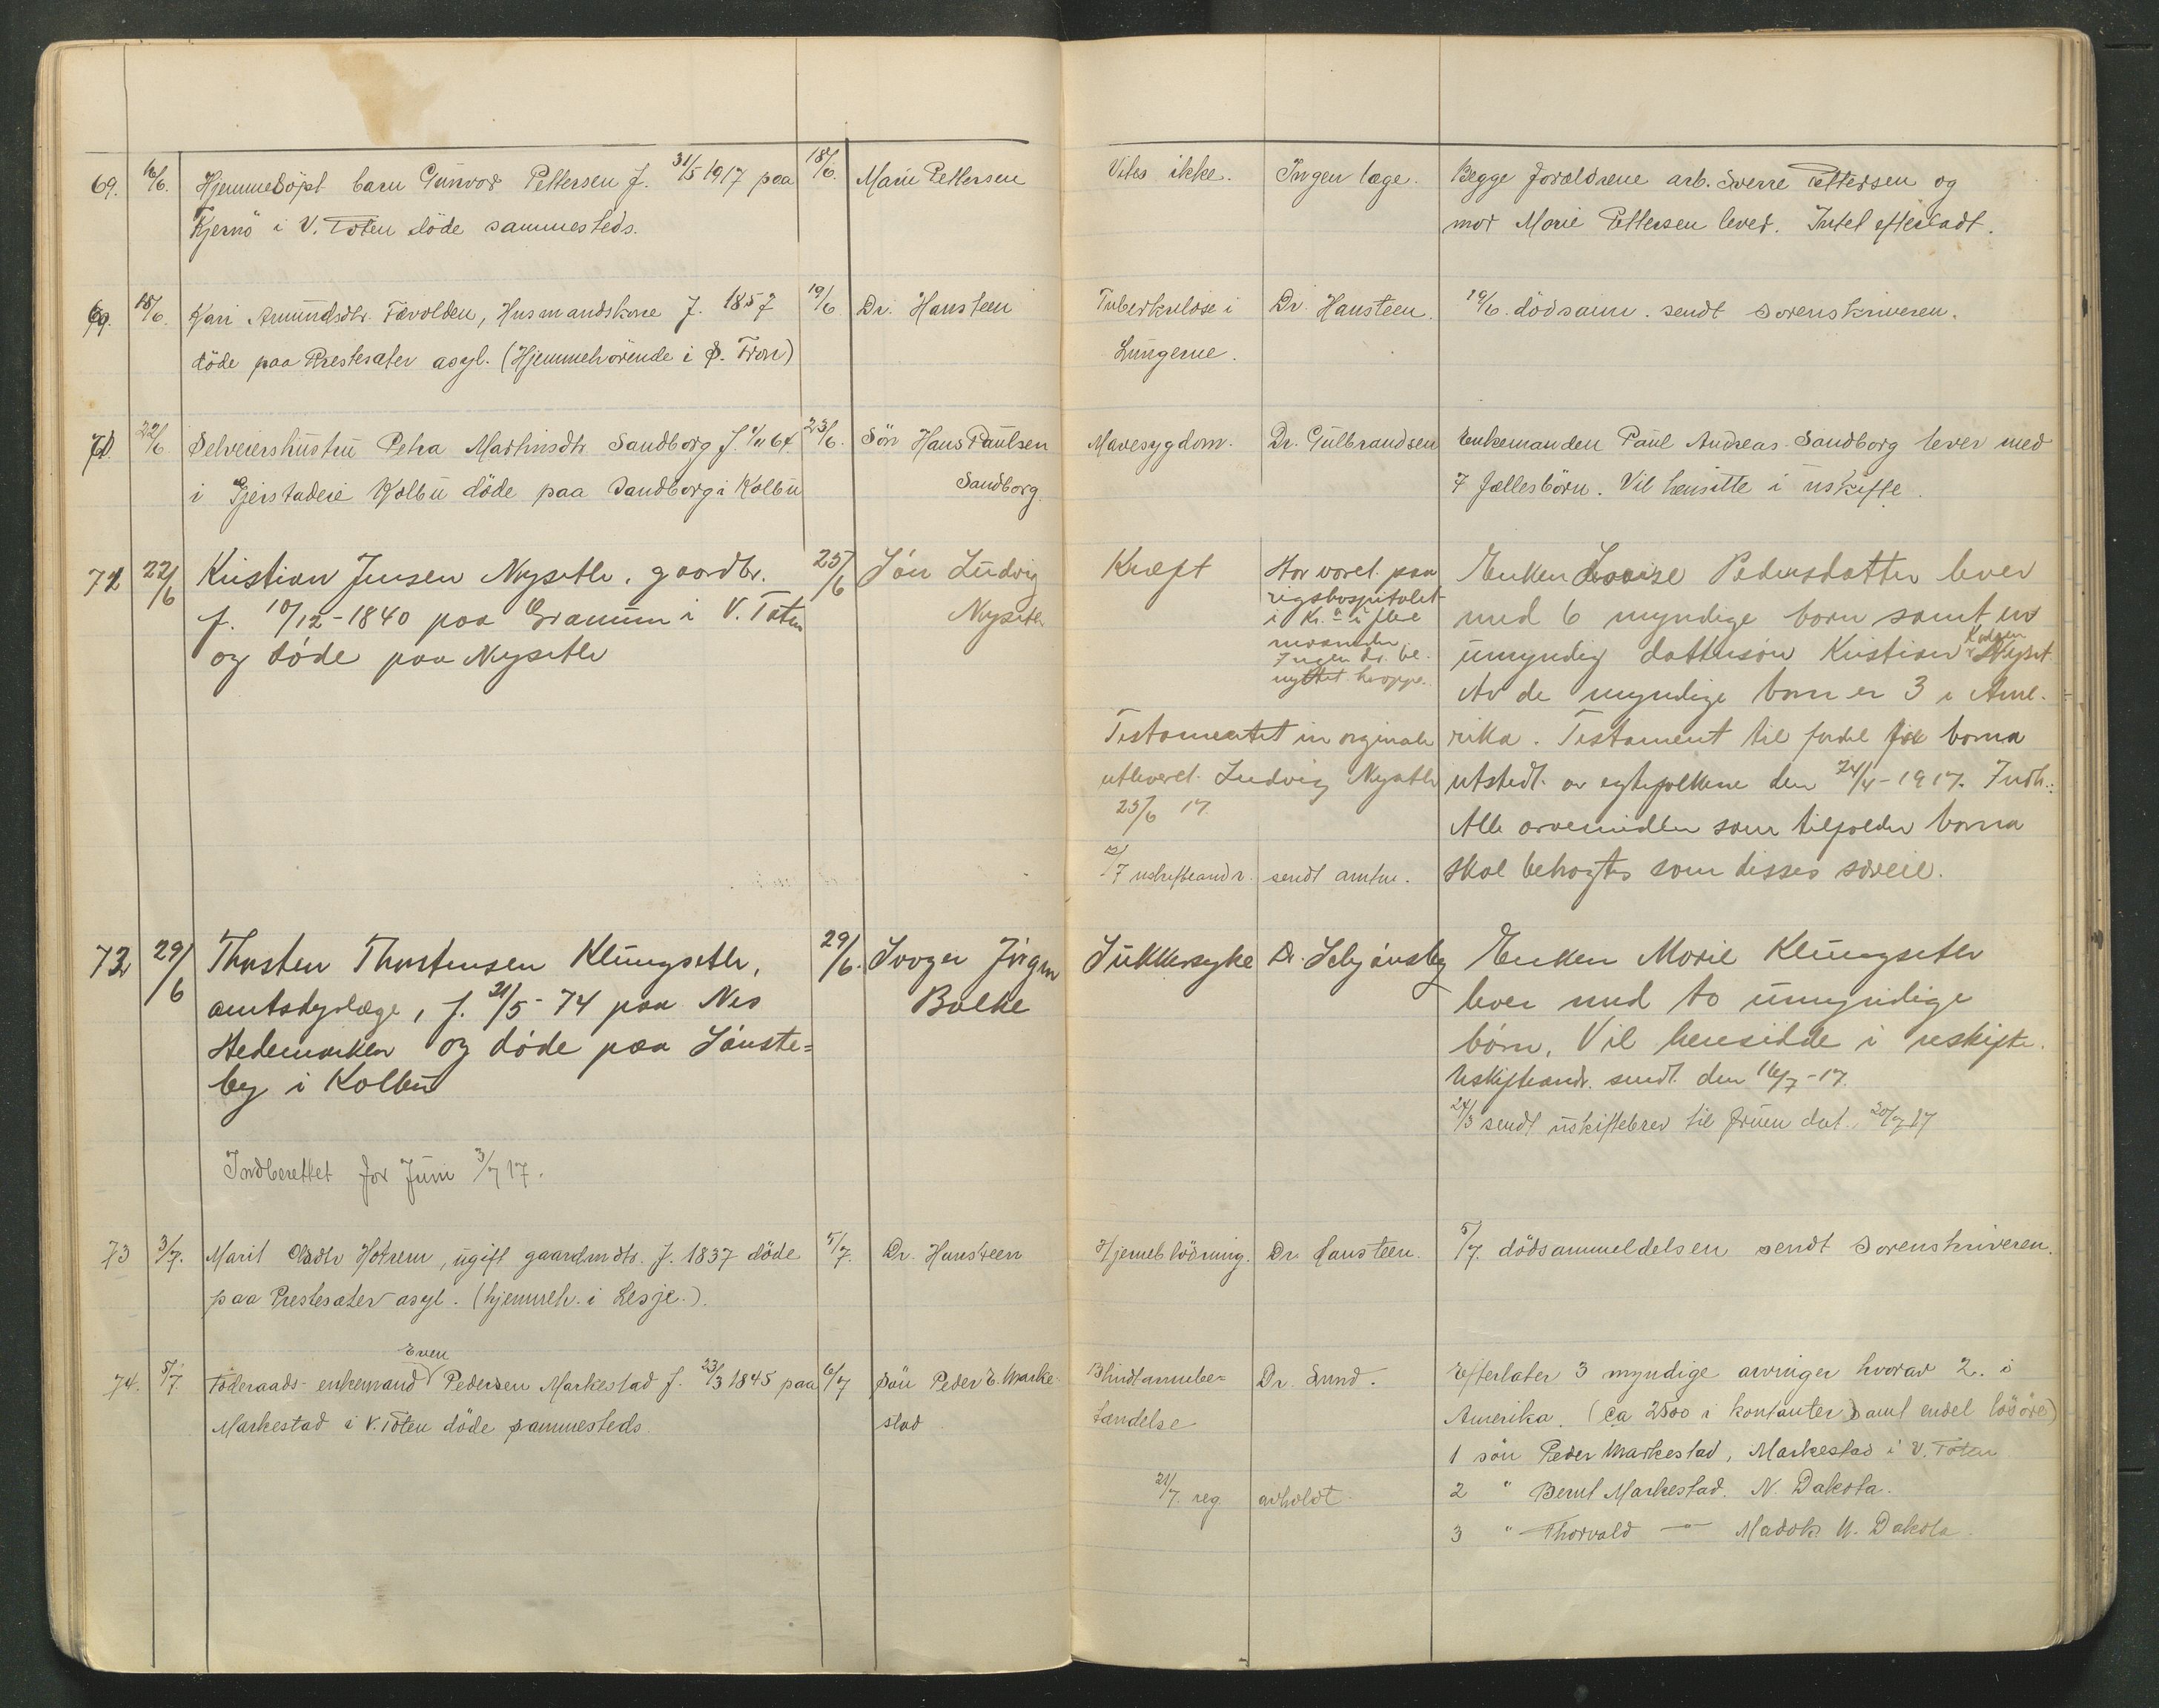 69. 16/6. Hjemmedöpt barn Gunvor Pettersen f. 31/5 1917 paa 18/6. Marie Pettersen Vites ikke. Ingen læge. Begge foraldrene arb. Sverre Pettersen og
Kjernö i V. Toten döde sammesteds. mor Marie Pettersen lever. Intet efterladt.
69. 18/6. Kari Amundsdtr. Tævolden, Husmandskone f. 1857 19/6. Dr. Hansteen Tuberkulose i Dr. Hansteen. 19/6. dödsanm. sendt Sorenskriveren.
döde paa Prestesæter asyl. (Hjemmehörende i S. Fron) Lungerne.
70 22/6. Selveierhustru Petra Martinsdtr Sandborg f. 64. 23/6. Sön Hans Paulsen Mavesygdom. Dr. Gulbrandsen Enkemanden Paul Andreas Sandborg lever med
i Gjerstadeie Kolbu döde paa Sandborg i Kolbu Sandborg. 7 fællesbörn. Vil hensitte i uskifte.
72 22/6 Kristian Jensen Nyseth, gaardbr. 25/6 Sön Ludvig Kræft Har været paa Enken Lovise Pedersdatter lever
f. 10/12-1840 paa Gramum i V. Toten Nyseth rigshospitalet i Kr.a i flere med 6 myndige born samt en
og döde paa Nyseth maaneder. Ingen dr. be- umyndig dattersön Kristian Nyset
nyttet heroppe. Av de myndige born er 3 i Ame-
Testamentet in orginale rika. Testament til fordel for borna
utleveret Ludvig Nyseth utstedt av egtefolkene den 24/4-1917. Indh.:
25/6 17. Alle arvemidler som tilfalder borna
/7 uskifteandr. sendt amtm. skal betragtes som disses særeie.
72 29/6 Thorsten Thorstensen Klungseth, 29/6. Svoger Jörgen Sukkersyke Dr. Schjönsby Enken Marie Klungseth
amtsdyrlæge, f. 21/5-74 paa Nes Bælke lever med to umyndige
Hedemarken og döde paa Sönste- börn. Vil hensidde i uskifte.
by i Kolbu Uskifteandr. sendt den 16/7-17.
24/3 sendt uskiftebrev til fruen dat. 20/7 17
Indberettet for Juni 3/7 17.
73 3/7. Marit Olsdtr Hotrem, ugift gaardmdtr. f. 1837 döde 5/7. Dr. Hansteen Hjernebl­ödning. Dr. Hansteen. 5/7. dödsanmeldelsen sendt Sorenskriveren.
paa Prestesæter asyl. (hjemmeh. i Lesje.).
Even
74. 5/7. Föderaads-enkemand Pedersen Markestad f. 23/3 1845 paa 6/7 Sön Peder E. Marke- Blindtarmbe- Dr. Lund. Efterlater 3 myndige arvinger hvorav 2. i
Markestad i V. Toten döde sammesteds. stad tændelse Amerika. (ca 2500 i kontanter samt endel lösöre)
1 sön Peder Markestad, Markestad i V. Toten
21/7. reg. avholdt. 2 " Bernt Markestad. N. Dakota.
3 " Thorvald —"— Madok N. Dakota.